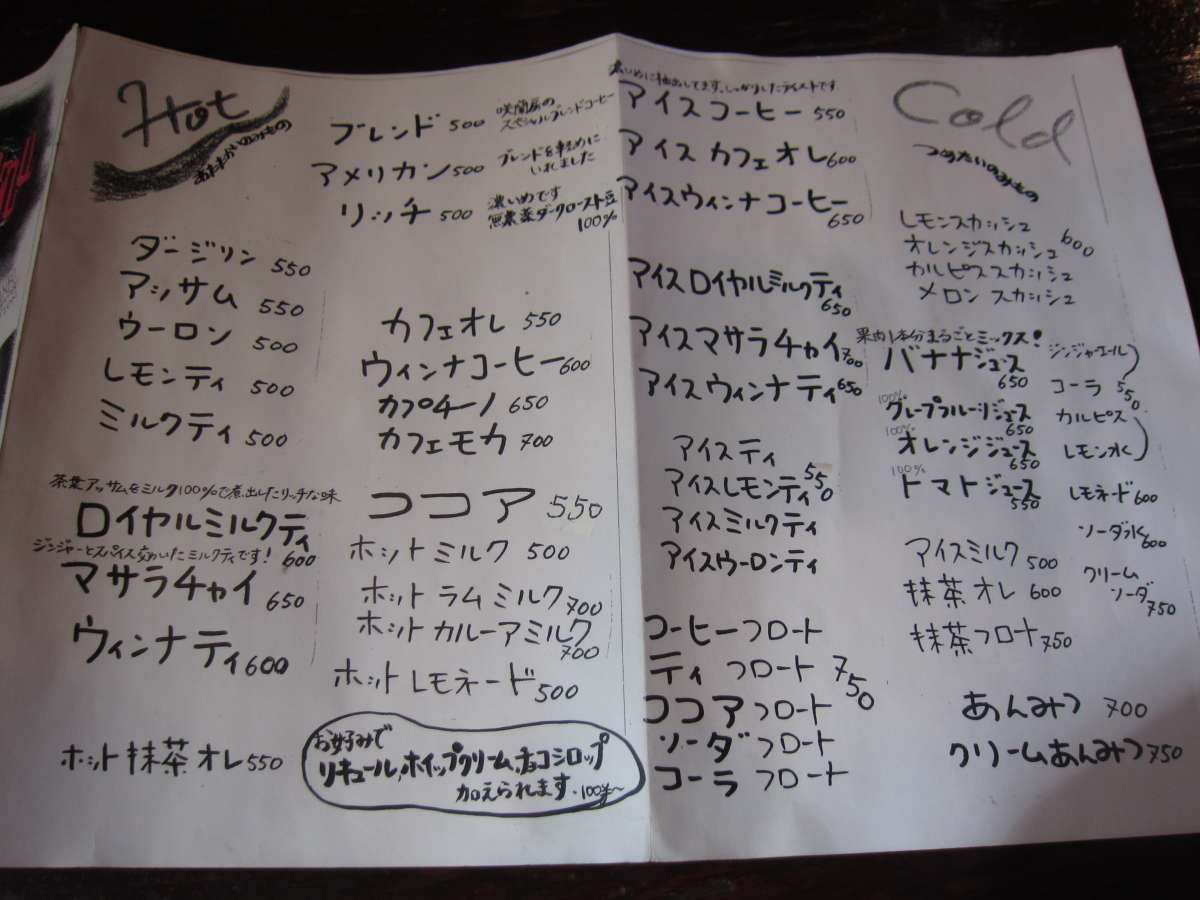 Hot
あたたかいのみもの
ブレンド 500
咲蘭房の
スペシャルブレンドコーヒー
アメリカン 500
ブレンドを軽めに
いれました
リッチ 500
濃いめです
無農薬ダークロースト豆
100%
ダージリン 550
アッサム 550
ウーロン 500
レモンティ 500
ミルクティ 500
茶葉アッサムをミルク100%で煮出したリッチな味
ロイヤルミルクティ 600
ジンジャーとスパイス効いたミルクティです!
マサラチャイ 650
ウィンナティ 600
ホット抹茶オレ 550
カフェオレ 550
ウィンナコーヒー 600
カプチーノ 650
カフェモカ 700
ココア 550
ホットミルク 500
ホットラムミルク 700
ホットカルーアミルク 700
ホットレモネード 500
お好みで
リキュール、ホイップクリーム、チョコシロップ
加えられます・100円〜
濃いめに抽出してます、しっかりしたテイストです
アイスコーヒー 550
アイスカフェオレ 600
アイスウィンナコーヒー 650
アイスロイヤルミルクティ 650
アイスマサラチャイ 700
アイスウィンナティ 650
アイスティ
アイスレモンティ 550
アイスミルクティ
アイスウーロンティ
コーヒーフロート
ティフロート 750
ココアフロート
ソーダフロート
コーラフロート
Cold
つめたいのみもの
レモンスカッシュ 600
オレンジスカッシュ
カルピススカッシュ
メロンスカッシュ
果肉1本分まるごとミックス!
バナナジュース 650
100%
グレープフルーツジュース 650
100%
オレンジジュース 650
100%
トマトジュース 550
アイスミルク 500
抹茶オレ 600
抹茶フロート 750
ジンジャエール
コーラ 550
カルピス
レモン水
レモネード 600
ソーダ水 600
クリーム
ソーダ 750
あんみつ 700
クリームあんみつ 750